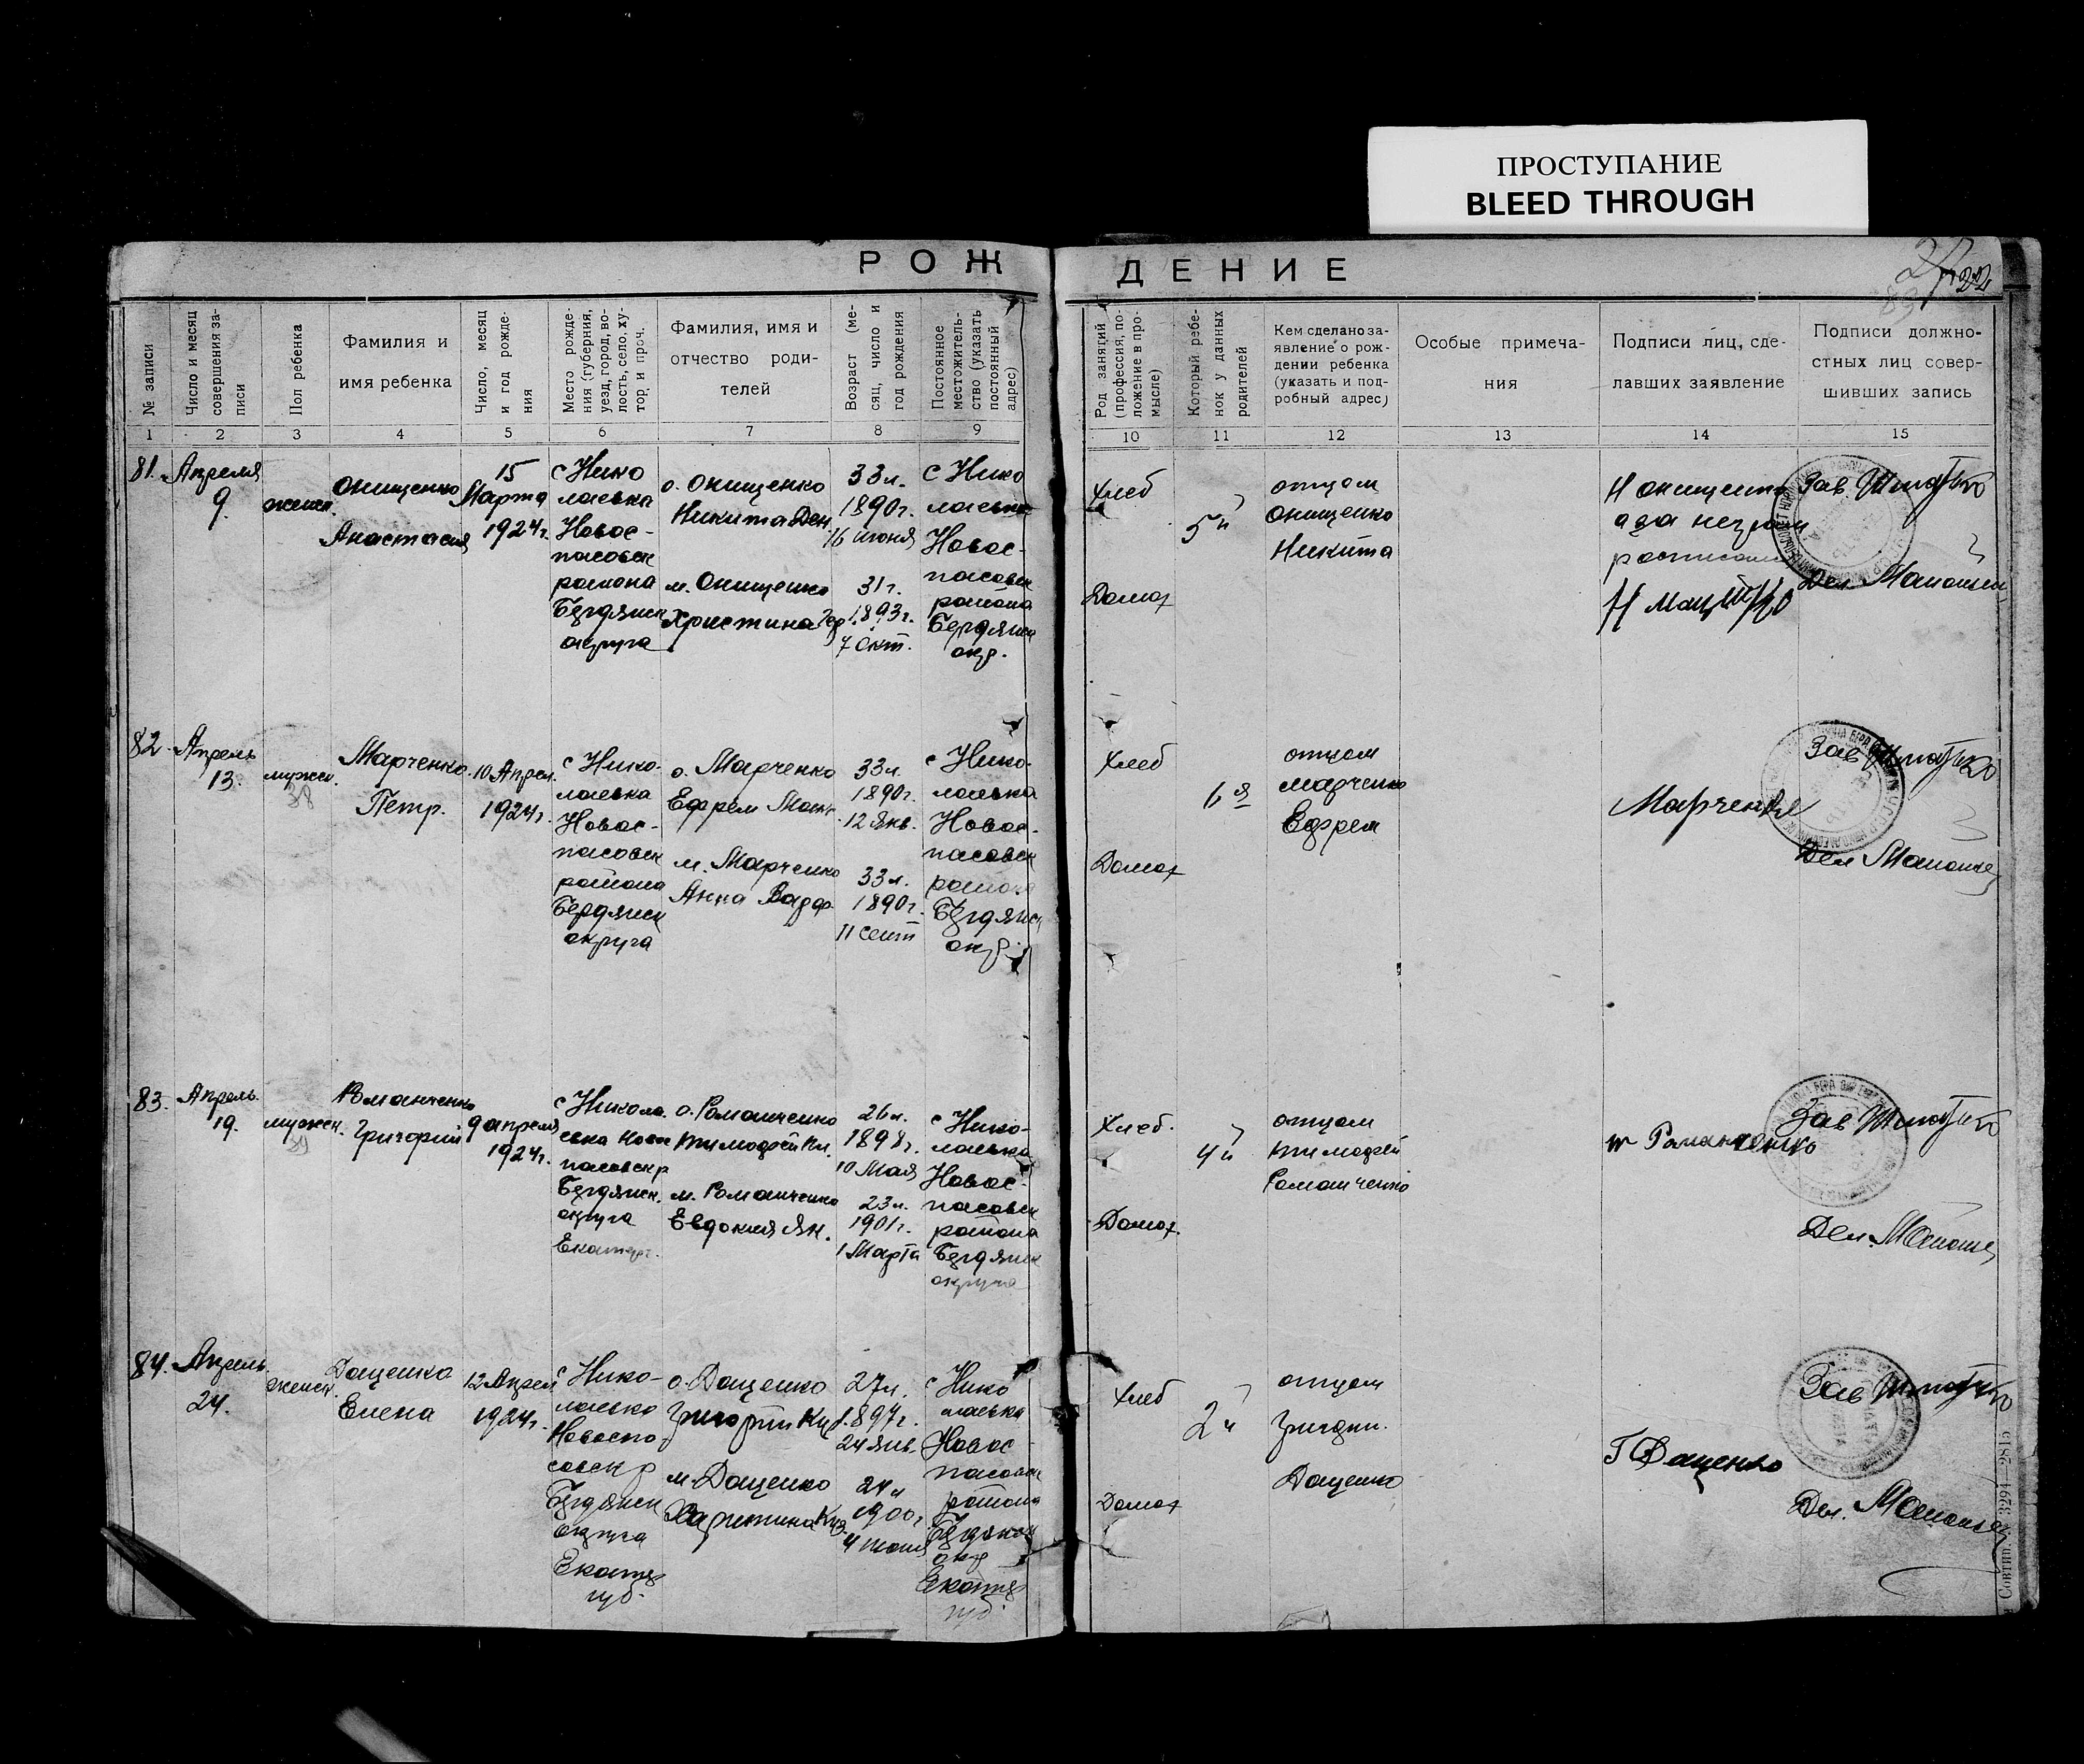 ПРОСТУПАНИЕ
BLEED THROUGH
РОЖДЕНИЕ
22
№ записи
Число и месяц совершения записи
Пол ребенка
Фамилия и имя ребенка
Число, месяц и год рождения
Место рождения (губерния, уезд, город, волость, село, хутор, и проч.
Фамилия, имя и отчество родителей
Возраст (месяц, число и год рождения
Постоянное местожительство (указать постоянный адрес)
Род занятий (профессия, положение в промысле)
Который ребенок у данных родителей
Кем сделано заявление о рождении ребенка (указать и подробный адрес)
Особые примечания
Подписи лиц, сделавших заявление
Подписи должностных лиц совершивших запись
1 2 3 4 5 6 7 8 9 10 11 12 13 14 15
81. Апреля
9.
женск.
Онищенко
Анастасия
15
Марта
1924г.
с Нико
лаевка
Новос-
пасовск
района
Бердянск
округа
о. Онищенко
Никита Ден.
м. Онищенко
Христина
33л.
1890г.
16 июня
31г.
1893г.
7 окт.
с Нико
лаевка
Новос-
пасовск
района
Бердянск
окр.
Хлеб
Домох
5й
отцом
Онищенко
Никита
Н онищенко
Зав.
Дел.
82. Апрель
13.
мужск.
38
Марченко
Петр.
10 Апрел.
1924г.
с Нико-
лаевка
Новос-
пасовск
района
Бердянск
округа
о. Марченко
Ефрем
м. Марченко
Анна Варф.
33л.
1890г.
12 Янв.
33л.
1890г.
11 сент
с Нико-
лаевка
Новос-
пасовск
района
Бердянск
окр.
Хлеб
Домох
6й
отцом
марченко
Ефрем
Марченко
Зав
Дел
83. Апрель
19.
мужск.
39
Романченко
Григорий
9 апреля
1924г.
с Никола
евка Ново
пасовск р
Бердянск.
округа
Екатер.
о. Романченко
Тимофей
м. Романченко
Евдокия Як.
26л.
1898г.
10 Мая
23л.
1901г.
1 Марта
с Нико-
лаевка
Новос-
пасовск
района
Бердянск
округа
Хлеб.
Домох.
4й
отцом
Тимофей
Романченко
т Романченко
Зав
Дел.
84. Апрель
24.
женск.
Даценко
Елена
12 Апрел
1924г.
с Нико-
лаевка
Новоспа
совск р
Бердянск
округа
Екатер
губ.
о. Даценко
Григорий
м. Даценко
Харитина Куз
27л.
1897г.
24 янв.
24 л
1900г.
4 июня
с Нико
лаевка
Новос
пасовск
района
Бердянск
окр
Екатер
губ.
Хлеб
Домох
2й
отцом
Григори.
Даценко
Г Даценко
Зав
Дел.